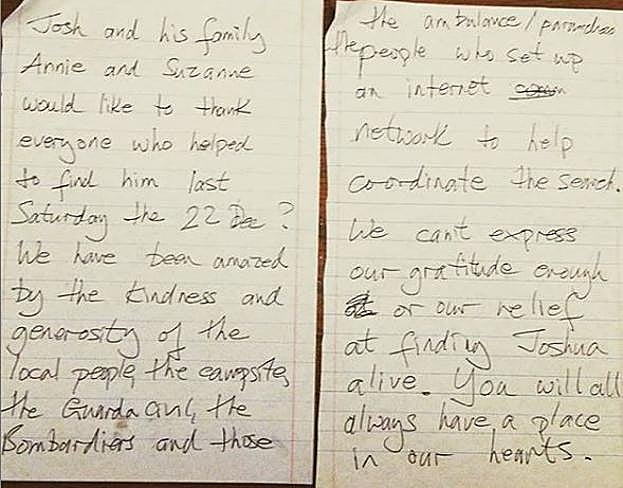 Josh and his family
Annie and Suzanne
would like to thank
everyone who helped
to find him last
Saturday the 22 Dec ?
We have been amazed
by the kindness and
generosity of the
local people, the campsite,
the Guarda Civil, the
Bombardiers and those
the ambulance / paramedics
the people who set up
an internet
network to help
coordinate the search.
We can't express
our gratitude enough
or our relief
at finding Joshua
alive. You will all
always have a place
in our hearts.